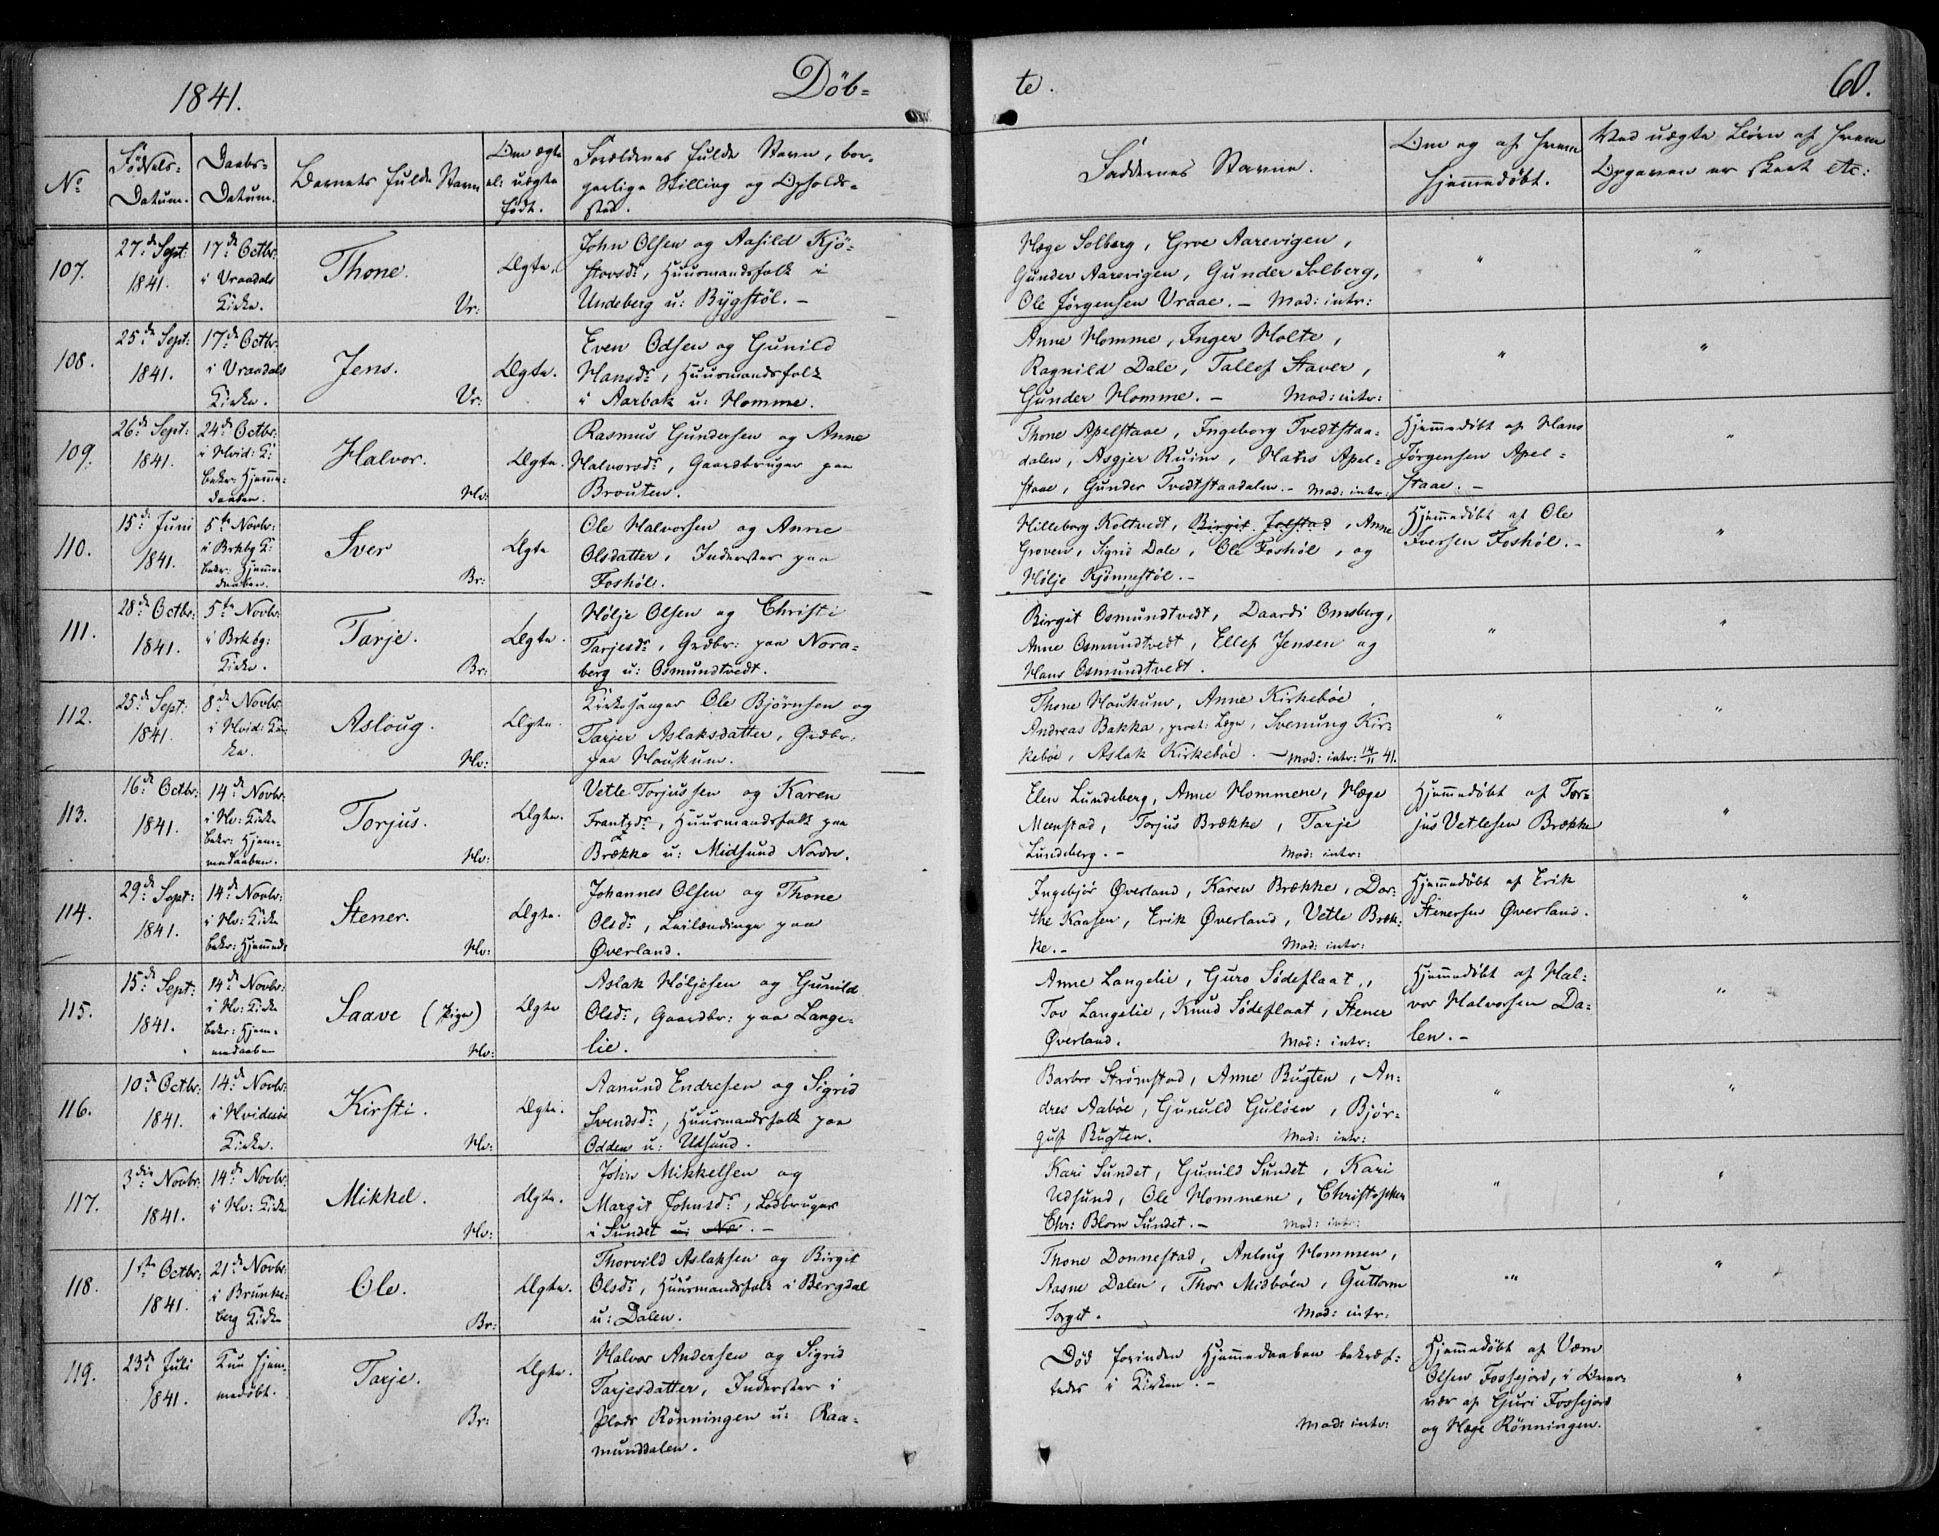 1841.
Döb-
te.
60.
No
Födsels-
Datum.
Daabs-
Datum.
Barnets fulde Navn
Om ægte
el: uægte
født.
Forældrenes fulde Navn, bor-
gerlige Stilling og Opholds-
sted.
Faddernes Navne.
Om og af hvem
hjemmedøbt.
Ved uægte Børn af hvem
Opgaven er skeet etc:
107.
27de Sept:
1841.
17de Octbr:
i Vraadals
Kirke.
Thone.
Vr:
Ægte.
John Olsen og Aasild Kjö-
stovsdr, Huusmandsfolk i
Undeberg u: Bygstöl. -
Hæge Solberg, Groe Aarevigen,
Gunder Aarevigen, Gunder Solberg,
Ole Jørgensen Vraae. - Mod: intr:
"
"
108.
25de Sept:
1841.
17de Octbr:
i Vraadals
Kirke.
Jens.
Vr:
Ægte.
Even Odsen og Gunild
Hansdr, Huusmandsfolk
i Aarbak u: Homme.
Anne Homme, Inger Holte,
Ragnild Dale, Tallef Staver,
Gunder Homme. - Mod: intr:
"
"
109.
26de Sept:
1841.
24de Octbr:
i Hvid: K:
bekr: Hjemme-
daaben.
Halvor.
Hv:
Ægte.
Rasmus Gundersen og Anne
Halvorsdr, Gaardbruger paa
Brouten.
Thone Apelstaae, Ingeborg Tvedtstaa-
dalen, Asgjer Ruim, Hans Apel-
staae, Gunder Tvedtstaadalen. - Mod: intr:
Hjemmedöbt af Hans
Jörgensen Apel-
staae. -
"
110.
15de Juni
1841.
5te Novbr:
i Brkbg K:
bekr: Hjemme-
daaben.
Iver
Br:
Ægte
Ole Halvorsen og Anne
Olsdatter, Inderster paa
Foshöl.
Hilleborg Koltvedt, Birgit Jolstad, Anne
Groven, Sigrid Dale, Ole Foshöl, og
Hölje Kjönnestöl. -
Hjemmedöbt af Ole
Iversen Foshöl. -
"
111.
28de Octbr:
1841.
5te Novbr:
i Brkbg:
Kirke.
Tarje.
Br:
Ægte.
Hölje Olsen og Christi
Tarjesdr, Grdbr: paa Nora-
berg u: Osmundtvedt.
Birgit Osmundtvedt, Daardi Omsberg,
Anne Osmundtvedt, Ellef Jensen og
Hans Osmundtvedt.
"
"
112.
25de Sept:
1841.
8de Novbr:
i Hvid: Kir-
ke.
Asloug.
Hv:
Ægte.
Kirkesanger Ole Björnsen og
Tarjer Aslaksdatter, Grdbr:
paa Haukum.
Thone Haukum, Anne Kirkeböe,
Andreas Bakka, pract: Læge, Svenung Kir-
keböe, Aslak Kirkeböe. - Mod: intr: 14/11 41.
"
"
113.
16de Octbr:
1841.
14de Novbr:
i Hv: Kirke
bekr: Hjem-
medaaben.
Torjus.
Hv:
Ægte.
Vetle Torjussen og Karen
Frantzdr, Huusmandsfolk paa
Brække u: Midsund Nordre.
Elen Lundeberg, Anne Hommene, Hæge
Meenstad, Torjus Brække, Tarje
Lundeberg. - Mod: intr:
Hjemmedöbt af Tor-
jus Vetlesen Brække
"
114.
29de Sept:
1841.
14de Novbr:
i Hv: Kirke
bekr: Hjemmed:
Stener.
Hv:
Ægte.
Johannes Olsen og Thone
Olsdr, Leilændinge paa
Øverland.
Ingebjör Øverland, Karen Brække, Dor-
the Kaasen, Erik Øverland, Vetle Bræk-
ke. - Mod: intr:
Hjemmedöbt af Erik
Stenersen Øverland.
"
115.
15de Sept:
1841.
14de Novbr:
i Hv: Kirke
bekr: Hjem-
medaaben
Saave (Pige)
Hv:
Ægte
Aslak Höljesen og Gunild
Olsdr, Gaardbr: paa Lange-
lie.
Anne Langelie, Guro Södeflaat,
Tov Langelie, Knud Södeflaat, Stener
Øverland. Mod: intr:
Hjemmedöbt af Hal-
vor Halvorsen Da-
len. -
"
116.
10de Octbr:
1841.
14de Novbr:
i Hvidesöe
Kirke.
Kirsti.
Hv:
Ægte.
Aanund Endresen og Sigrid
Svendsdr, Huusmandsfolk paa
Odden u: Udsund.
Barbro Strömstad, Anne Bugten, An-
dres Aaböe, Gunuld Gulöen, Björ-
guf Bugten. Mod: intr:
"
"
117.
3die Novbr:
1841.
14de Novbr:
i Hv: Kirke
Mikkel.
Hv:
Ægte.
John Mikkelsen og
Margit Johnsdr, Lodbruger
i Sundet u: Næ. -
Kari Sundet, Gunild Sundet, Kari
Udsund, Ole Hommene, Christopher
Chr: Blom Sundet. - Mod: intr:
"
"
118.
1ste Octbr:
1841.
21de Novbr:
i Brunke-
berg Kirke
Ole.
Br:
Ægte.
Thorvild Aslaksen og Birgit
Olsdr, Huusmandsfolk i Bergdal
u: Dalen.
Thone Donnestad, Anloug Hommen,
Aasne Dalen, Thor Midböen, Guttorm
Torgit. Mod: intr:
"
"
119.
23de Juli
1841.
Kun hjem-
medöbt.
Tarje.
Br:
Ægte.
Halvor Andersen og Sigrid
Tarjesdatter, Inderster i
Plads Rönningen u: Raa-
munddalen.
Död forinden Hjemmedaaben bekræf-
tedes i Kirken. -
Mod: intr:
Hjemmedöbt afVærn
Olsen Fossejord, i Over-
vær af Guri Fossejord
og Hæge Rönningen.
"